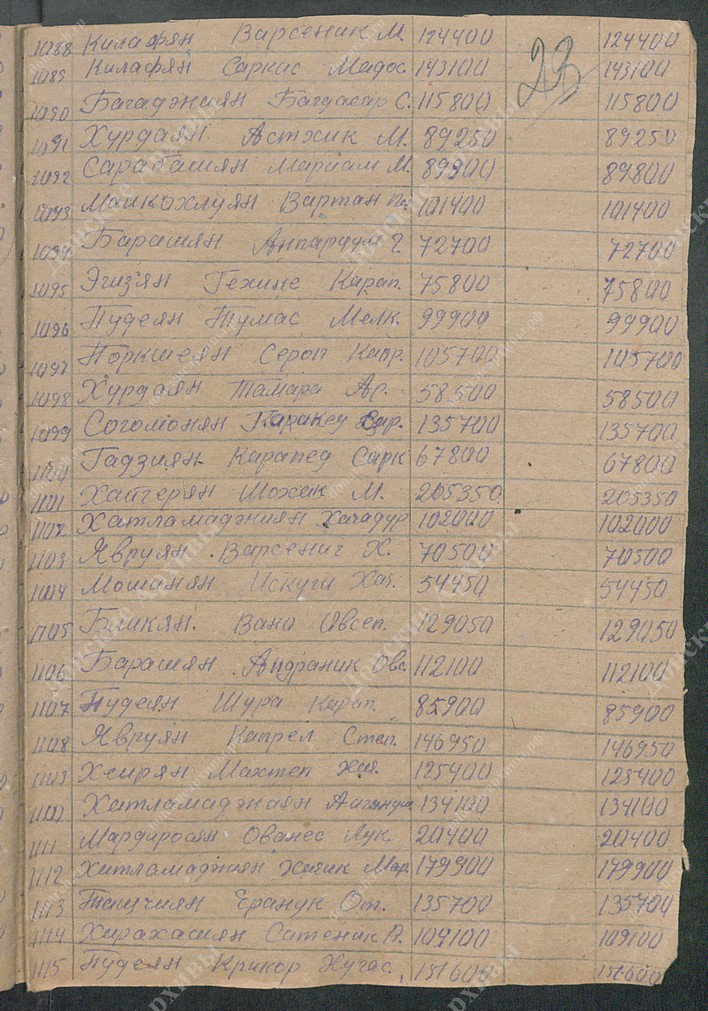 1088 Килафян Варсеник М. 124400 124400
1089 Килафян Саркис Мидос 143100 143100
23
1090 Багаджиян Багдасар С. 115800 115800
1091 Хурдаян Астхик М. 89250 89250
1092 Сарабашян Мариам М. 89800 89800
1093 Вартан 101400 101400
1094 Барашян Г. 72700 72700
1095 Эгизян Гехине Карап. 75800 75800
1096 Пудеян Тумас Мелк. 99900 99900
1097 Поркшеян Сероп Капр. 105700 105700
1098 Хурдаян Тамара Ар. 58500 58500
1099 Согомонян 135700 135700
1100 Гадзиян Карапед Сарк 67800 67800
1101 М. 205350 205350
1102 Хатламаджиян Хачадур 102000 102000
1103 Явруян Варсениг Х. 70500 70500
1104 Мошанян Искуги Хач. 54450 54450
1105 Бликян. Вано Овсеп. 129050 129050
1106 Барашян Андраник Овс. 112100 112100
1107 Пудеян Шура Карап. 85900 85900
1108 Явруян Капрел Степ. 146950 146950
1109 Хеирян Махтеп Хач. 125400 125400
1110 Хатламаджиян 134100 134100
1111 Мардиросян Ованес Лук. 20400 20400
1112 Хатламаджиян Хачик Мар. 179900 179900
1113 Тащиян Еранук От. 135700 135700
1114 Хирахасиян Сатеник 109100 109100
1115 Пудеян Крикор Хугас. 151600 151600